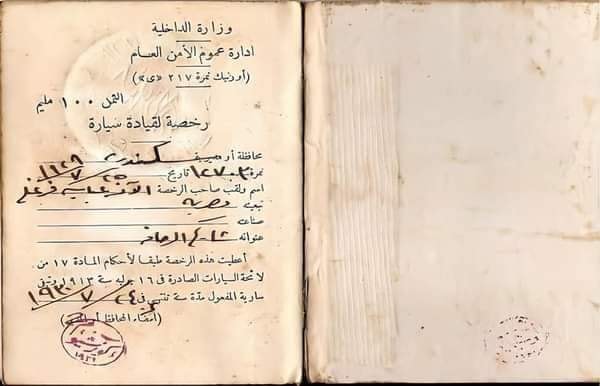 وزارة الداخلية
ادارة عموم الأمن العام
(أورنيك نمرة ٢١٧ «ى»)
الثمن ١٠٠ مليم
رخصة لقيادة سيارة
محافظة أو مديرية سكندرية
نمرة ١٢٧٠٣ تاريخ ٢٥/٧/١٩٢٨
اسم ولقب صاحب الرخصة الآنسة عباسية فرغلى
تبعية مصرية
صناعته
عنوانه شارع الرصافة
أعطيت هذه الرخصة طبقا لأحكام المادة ١٧ من
لائحة السيارات الصادرة فى ١٦ يوليه سنة ٩١٣ وتبقى
سارية المفعول مدة سنة تنتهى فى ٢٤/٧/١٩٣٠
(أمضاء المحافظ أو المدير)